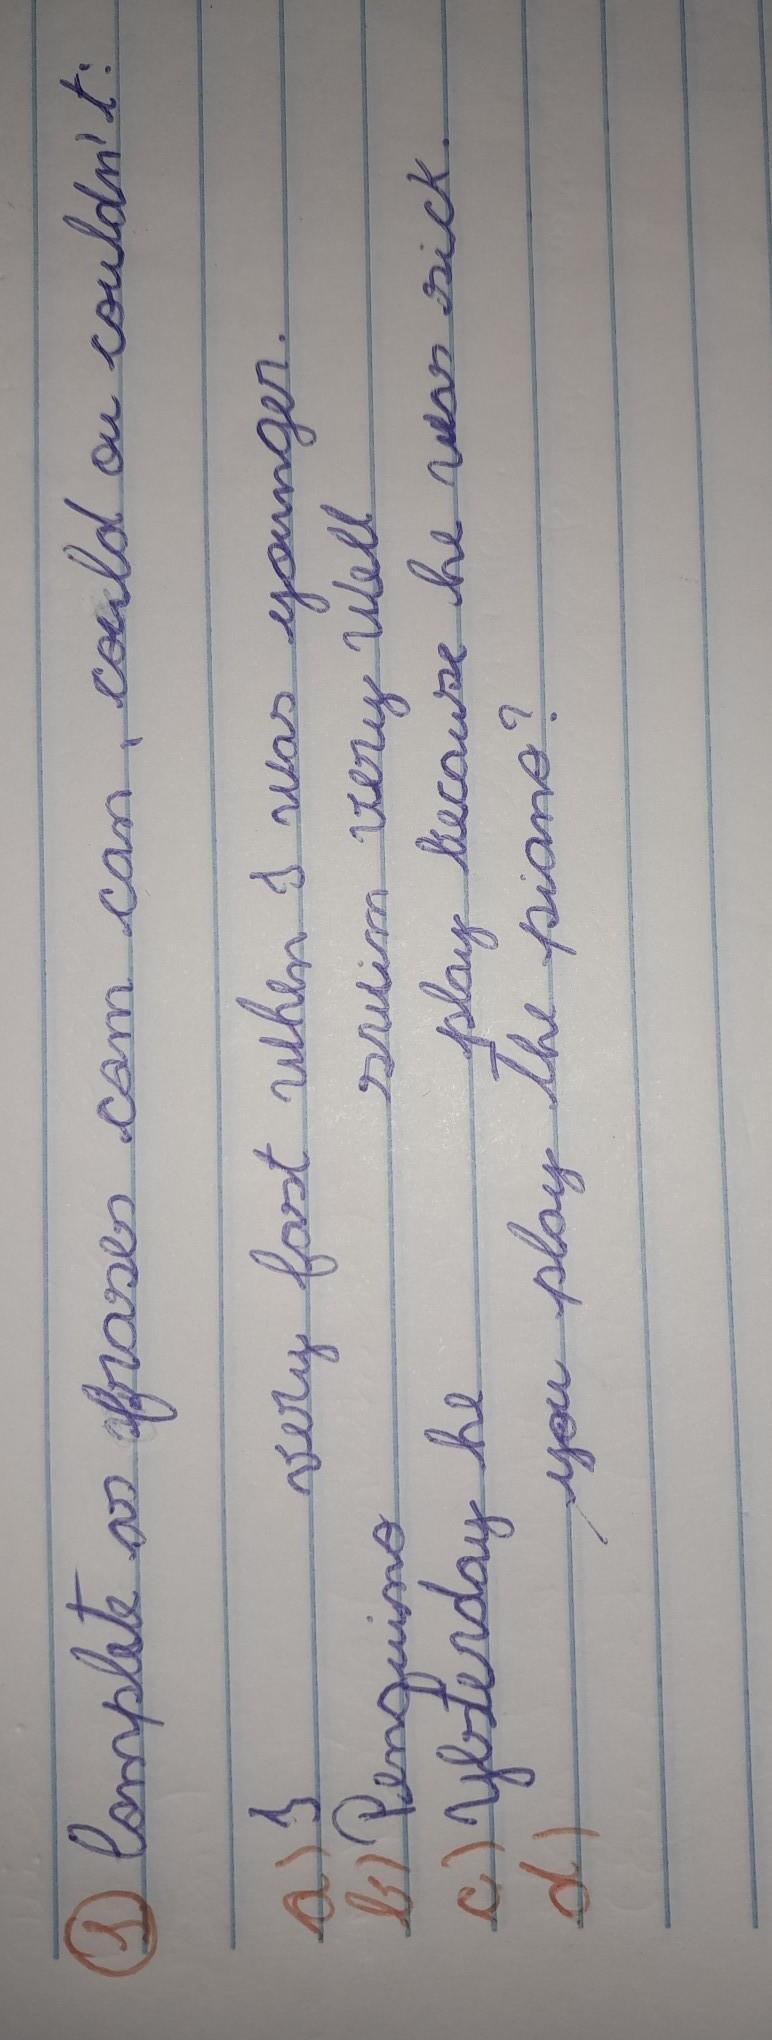 1 Complete as frases com can, could ou couldn't:
a) I very fast when I was younger.
b) Penguins swim very well
c) Yesterday he play because he was sick.
d) you play the piano?